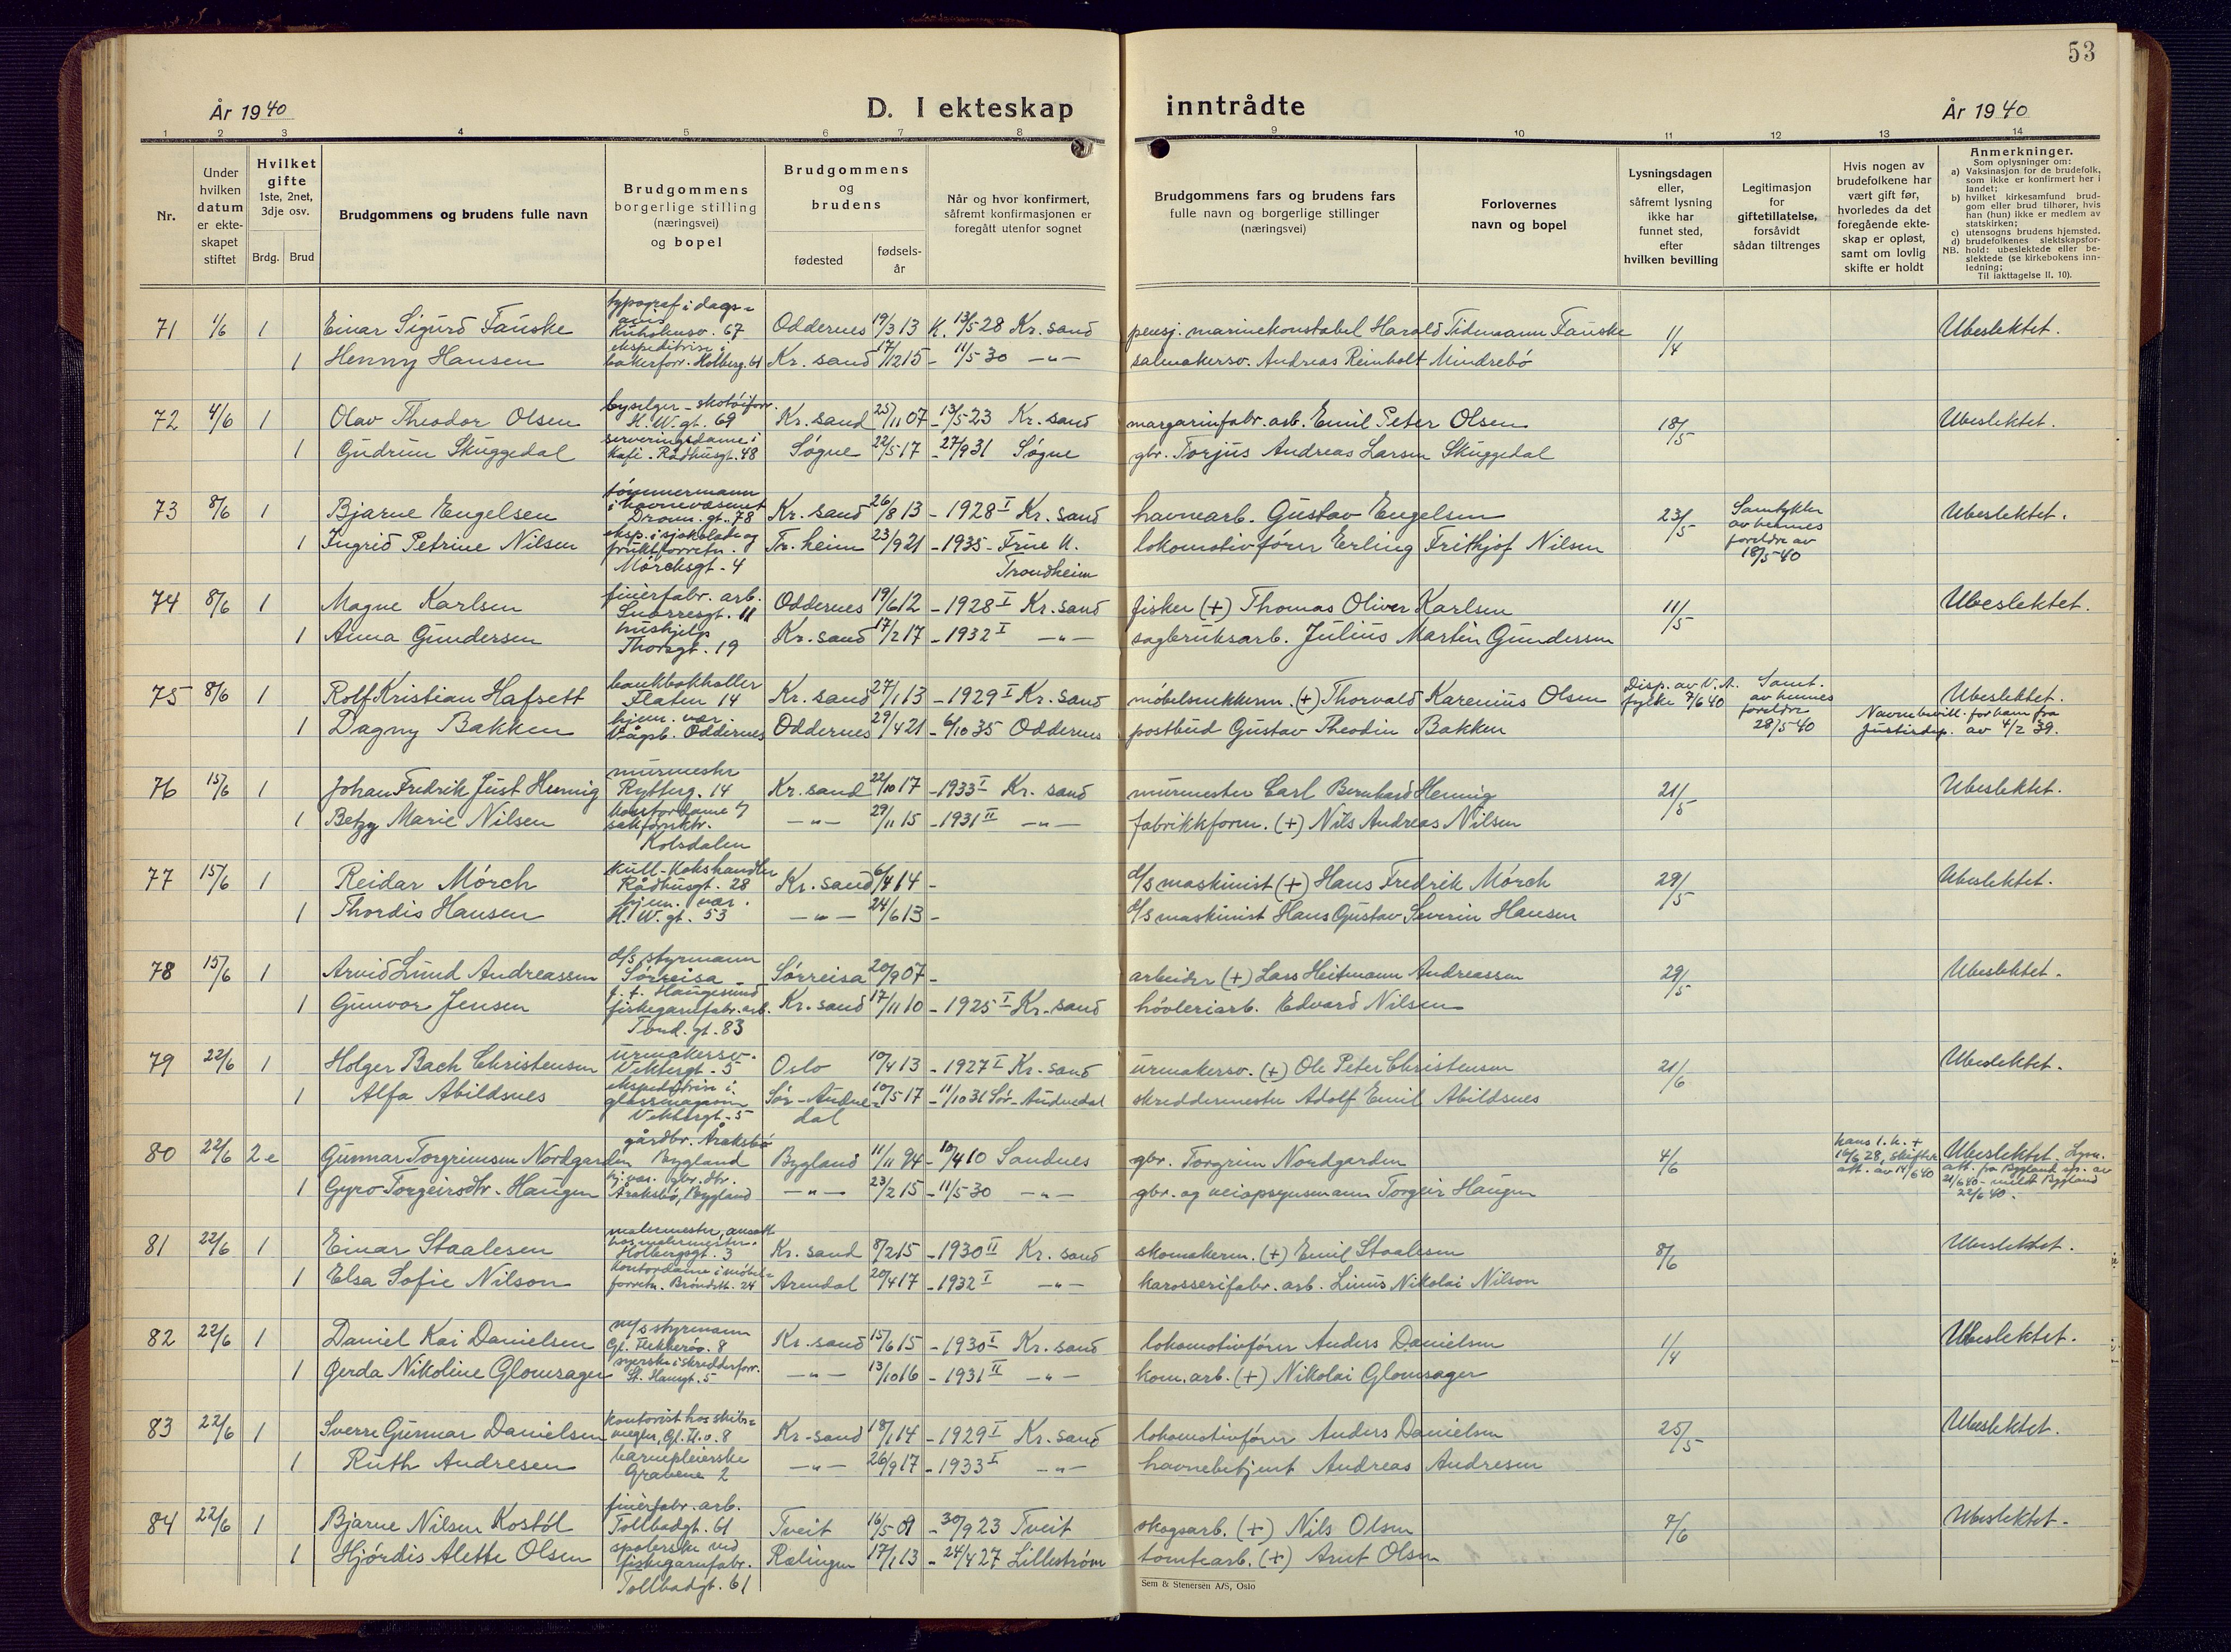 53
År 1940
D. I ekteskap inntrådte
År 1940
1 2 3 4 5 6 7 8 9 10 11 12 13 14
Nr.
Under hvilken datum er ekteskapet stiftet
Hvilket gifte 1ste, 2net, 3dje osv.
Brdg. Brud
Brudgommens og brudens fulle navn
Brudgommens borgerlige stilling (næringsvei) og bopel
Brudgommens og brudens
fødested
fødselsår
Når og hvor konfirmert, såfremt konfirmasjonen er foregått utenfor sognet
Brudgommens fars og brudens fars fulle navn og borgerlige stillinger (næringsvei)
Forlovernes navn og bopel
Lysningsdagen eller, såfremt lysning ikke har funnet sted, efter hvilken bevilling
Legitimasjon for giftetillatelse, forsåvidt sådan tiltrenges
Hvis nogen av brudefolkene har vært gift før, hvorledes da det foregående ekteskap er opløst, samt om lovlig skifte er holdt
Anmerkninger.
Som oplysninger om:
a) Vaksinasjon for de brudefolk, som ikke er konfirmert her i landet;
b) hvilket kirkesamfund brudgom eller brud tilhører, hvis han (hun) ikke er medlem av statskirken;
c) utensogns brudens hjemsted.
d) brudefolkenes slektskapsforhold: ubeslektede eller beslektede (se kirkebokens innledning;
NB. Til iakttagelse II. 10).
71 1/6 1 Einar Sigurd Fauske typograf i dags-avis Kuholmsv. 67 Oddernes 19/3 13 K. 13/5 28 Kr.sand pensj. marinekonstabel Harald Tidemann Fauske 1/4 Ubeslektet.
1 Henny Hansen ekspeditrise i bakerforr. Holberg. 61 Kr. sand 17/12 15 - 11/5 30 -"- salmakersv. Andreas Reinholt Mindrebö
72 4/6 1 Olav Theodor Olsen byselger - skotöiforr. H.W.gt. 69 Kr. sand 25/11 07 - 13/5 23 Kr. sand margarinfabr. arb. Emil Peter Olsen 18/5 Ubeslektet.
1 Gudrun Skuggedal serveringsdame i kafé. Rådhusgt. 48 Søgne 22/5 17 - 27/9 31 Søgne gbr. Torjus Andreas Larsen Skuggedal
73 8/6 1 Bjarne Engelsen tömmermann i havnevæsenet Dronn. gt. 78 Kr. sand 26/8 13 - 1928 I Kr. sand havnearb. Gustav Engelsen 23/5 Samtykke av hennes foreldre av 18/5-40 Ubeslektet.
1 Ingrid Petrine Nilsen eksp. i sjokolade og fruktforretn. Mörchsgt. 4 Tr. heim 23/9 21 - 1935 - Frue K. Trondheim lokomotivförer Erling Frithjof Nilsen
74 8/6 1 Magne Karlsen finérfabr. arb. Snorresgt. 11 Oddernes 19/6 12 - 1928 I Kr. sand fisker (+) Thomas Oliver Karlsen 11/5 Ubeslektet.
1 Anna Gundersen hushjelp Thorsgt. 19 Kr. sand 17/2 17 - 1932 I -"- sagbruksarb. Julius Martin Gundersen
75 8/6 1 Rolf Kristian Hafsett bankbokholler Flaten 14 Kr. sand 27/1 13 - 1929 I Kr. sand möbelsnekkerm. (+) Thorvald Karenius Olsen Disp. av V.A. fylke 7/6 40 Samt. av hennes foreldre 28/5-40 Ubeslektet.
1 Dagny Bakken hjem. vær. Vågsb. Oddernes Oddernes 29/4 21 - 6/10 35 Oddernes postbud Gustav Theodin Bakken Navnebevill. for ham fra Justisdep. av 4/2 39.
76 15/6 1 Johan Fredrik Just Hennig murmester Rytterg. 14 Kr. sand 22/10 17 - 1933 I Kr. sand murmester Carl Bernhard Hennig 21/5 Ubeslektet.
1 Betzy Marie Nilsen kontordame Kolsdalen -"- 29/11 15 - 1931 II -"- fabrikkform. (+) Nils Andreas Nilsen
77 15/6 1 Reidar Mörch kull-kokshandler Rådhusgt. 28 Kr. sand 6/4 14 - d/s maskinist (+) Hans Fredrik Mörch 29/5 Ubeslektet.
1 Thordis Hansen hjem. vær. H.W.gt. 53 -"- 24/6 13 - d/s maskinist Hans Gustav Severin Hansen
78 15/6 1 Arvid Lund Andreassen d/s styrmann Sörreisa p.t. Haugesund Sörreisa 20/9 07 - arbeider (+) Lars Heitmann Andreassen 29/5 Ubeslektet.
1 Gunvor Jensen fiskegarnfabr. arb. Tord. gt. 83 Kr. sand 17/11 10 - 1925 I Kr. sand hövleriarb. Edvard Nilsen
79 22/6 1 Holger Bach Christensen urmakersv. Vektergt. 5 Oslo 10/4 13 - 1927 I Kr. sand urmakersv. (+) Ole Peter Christensen 21/6 Ubeslektet.
1 Alfa Abildsnes ekspeditrise i glassmagasin Vektergt. 5 Sör-Audnedal 10/5 17 - 11/10 31 Sör-Audnedal skreddermester Adolf Emil Abildsnes
80 22/6 2e Gunnar Torgrimsen Nordgarden gårdbr. Åraksbö Bygland Bygland 11/11 94 - 10/4 10 Sandnes gbr. Torgrim Nordgarden 4/6 hans 1. h. + 16/6 28, skifteatt. av 14/6 40 Ubeslektet. Lysn. att. fra Bygland sp. av 21/6 40 - meldt Bygland 22/6 40.
1 Gyro Torgeirsdtr. Haugen hj. vær. gbr. dtr. Åraksbö, Bygland -"- 23/2 15 - 11/5 30 -"- gbr. og veiopsynsmann Torgeir Haugen
81 22/6 1 Einar Staalesen malermester, ansatt hos malermester. Holbergsgt. 3 Kr. sand 8/2 15 - 1930 II Kr. sand skomakerm. (+) Emil Staalesen 8/6 Ubeslektet.
1 Elsa Sofie Nilson kontordame i möbel-forretn. Bröndstr. 24 Arendal 20/4 17 - 1932 I -"- karosserifabr. arb. Linus Nikolai Nilson
82 22/6 1 Daniel Kai Danielsen m/s styrmann Gl. Flekkeröv. 8 Kr. sand 15/6 15 - 1930 I Kr. sand lokomotivförer Anders Danielsen 1/4 Ubeslektet.
1 Gerda Nikoline Glomsager syerske i skredderforr. St. Hansgt. 5 -"- 13/10 16 - 1931 II -"- kom. arb. (+) Nikolai Glomsager
83 22/6 1 Sverre Gunnar Danielsen kontorist hos skibs-megler, Gl. Fl.v. 8 Kr. sand 18/1 14 - 1929 I Kr. sand lokomotivförer Anders Danielsen 25/5 Ubeslektet.
1 Ruth Andresen barnepleierske Gravene 2 -"- 26/9 17 - 1933 I -"- havnebetjent Andreas Andresen
84 22/6 1 Bjarne Nilsen Kostöl finérfabr. arb. Tollbodgt. 61 Tveit 16/5 09 - 30/9 23 Tveit skogsarb. (+) Nils Olsen 7/6 Ubeslektet.
1 Hjördis Alette Olsen spolerske ved fiskegarnfabr. Tollbodgt. 61 Rælingen 17/1 13 - 24/4 27 Lilleström tomtearb. (+) Arnt Olsen
Sem & Stenersen A/S, Oslo